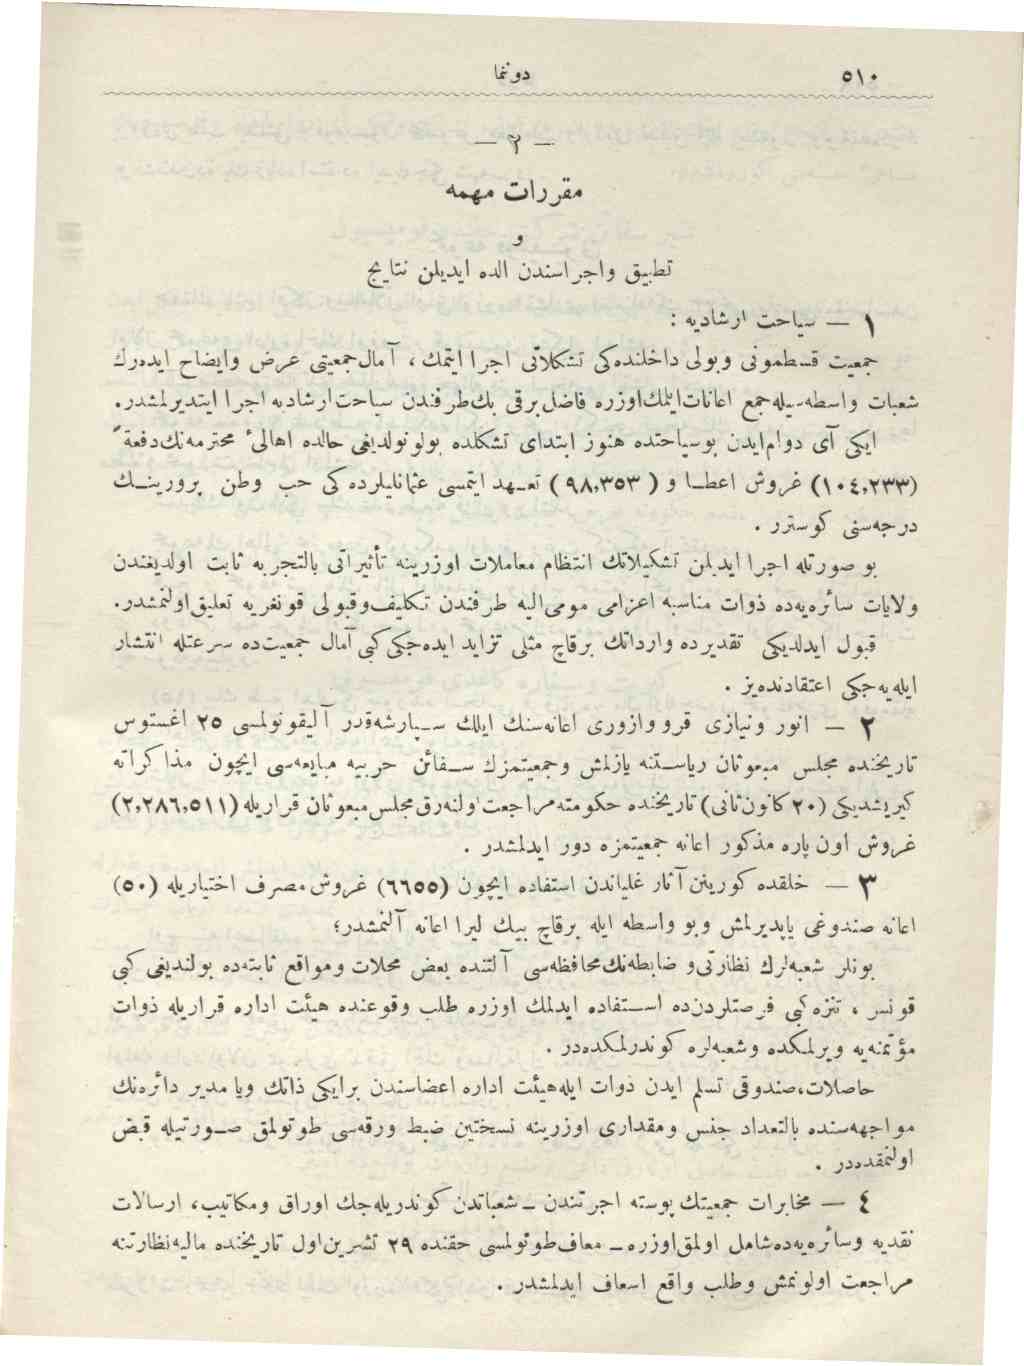 ٥١٠ دوننما
— ٢ —
مقررات مهمه
و
تطبيق واجراسندن الده ايديلن نتايج
١ — سياحت ارشاديه :
جمعيت قسطمونى وبولى داخلنده‌كى تشكلاتى اجرا ايتمك ، آمال جمعيتى عرض وايضاح ايده‌رك
شعبات واسطه‌سيله جمع اعانات ايلمك اوزره فاضل برقى بك طرفندن سياحت ارشاديه اجرا ايتديرلمشدر.
ايكى آى دوام ايدن بوسياحتده هنوز ابتداى تشكلده بولونولديغى حالده اهالئ محترمه‌نك دفعةً
(١٠٤,٢٣٣) غروش اعطا و (٩٨,٣٥٣) تعهد ايتمسى عثمانليلرده‌كى حب وطن پرورينك
درجه‌سنى كوسترر .
بو صورتله اجرا ايديلن تشكيلاتك انتظام معاملات اوزرينه تأثيراتى بالتجربه ثابت اولديغندن
ولايات سائره‌يه‌ده ذوات مناسبه اعزامى مومى‌اليه طرفندن تكليف وقبولى قونغريه تعليق اولنمشدر.
قبول ايدلديكى تقديرده وارداتك برقاچ مثلى تزايد ايده‌جكى كبى آمال جمعيت‌ده سرعتله انتشار
ايليه‌جكى اعتقادنده‌يز .
٢ — انور ونيازى قرووازورى اعانه‌سنك ايلك سپارشه‌قدر آليقونولمسى ٢٥ اغستوس
تاريخنده مجلس مبعوثان رياستنه يازلمش وجمعيتمزك سفائن حربيه مبايعه‌سى ايچون مذاكراته
كيريشديكى (٢٠ كانون ثانى) تاريخنده حكومته مراجعت اولنه‌رق مجلس مبعوثان قراريله (٢,٢٨٦,٥١١)
غروش اون پاره مذكور اعانه جمعيتمزه دور ايدلمشدر .
٣ — خلقده كورينن آثار غلياندن استفاده ايچون (٦٦٥٥) غروش مصرف اختياريله (٥٠)
اعانه صندوغى ياپديرلمش وبو واسطه ايله برقاچ بيك ليرا اعانه آلنمشدر؛
بونلر شعبه‌لرك نظارتى و ضابطه‌نك محافظه‌سى آلتنده بعض محلات ومواقع ثابته‌ده بولنديغى كبى
قونسر ، تنزه كبى فرصتلردن‌ده استفاده ايدلمك اوزره طلب وقوعنده هيئت اداره قراريله ذوات
مؤتمنه‌يه ويرلمكده وشعبه‌لره كوندرلمكده‌در .
حاصلات، صندوقى تسلم ايدن ذوات ايله هيئت اداره اعضاسندن برايكى ذاتك ويا مدير دائره‌نك
مواجهه‌سنده بالتعداد جنس ومقدارى اوزرينه نسختين ضبط ورقه‌سى طوتولمق صورتيله قبض
اولنمقده‌در .
٤ — مخابرات جمعيتك پوسته اجرتندن ـ شعباتدن كوندريله‌جك اوراق ومكاتيب، ارسالات
نقديه وسائره‌يه‌ده شامل اولمق اوزره ـ معاف طوتولمسى حقنده ٢٩ تشرين اول تاريخنده ماليه نظارتنه
مراجعت اولونمش وطلب واقع اسعاف ايدلمشدر .